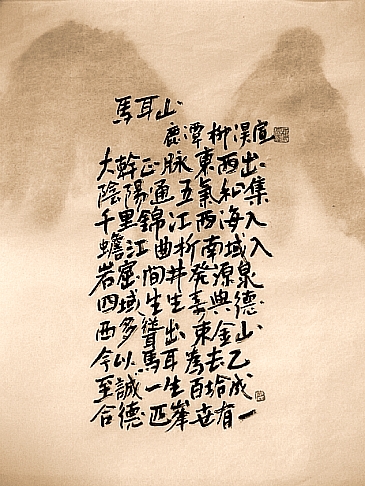 馬耳山
鹿潭 柳淏宣
大幹正脉東西出
陰陽通五氣和集
千里錦江西海入
蟾江曲折南域入
岩窟間井發源泉
四域生生喜興德
西多聳出東金山
今以馬耳為去乙
至誠一生百塔成
合德匹峯世有一